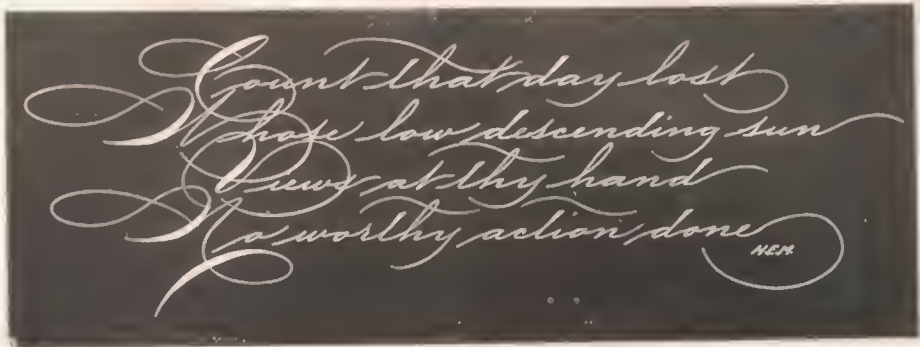 Count that day lost
Whose low descending sun
Views at thy hand
No worthy action done
H.E.M.